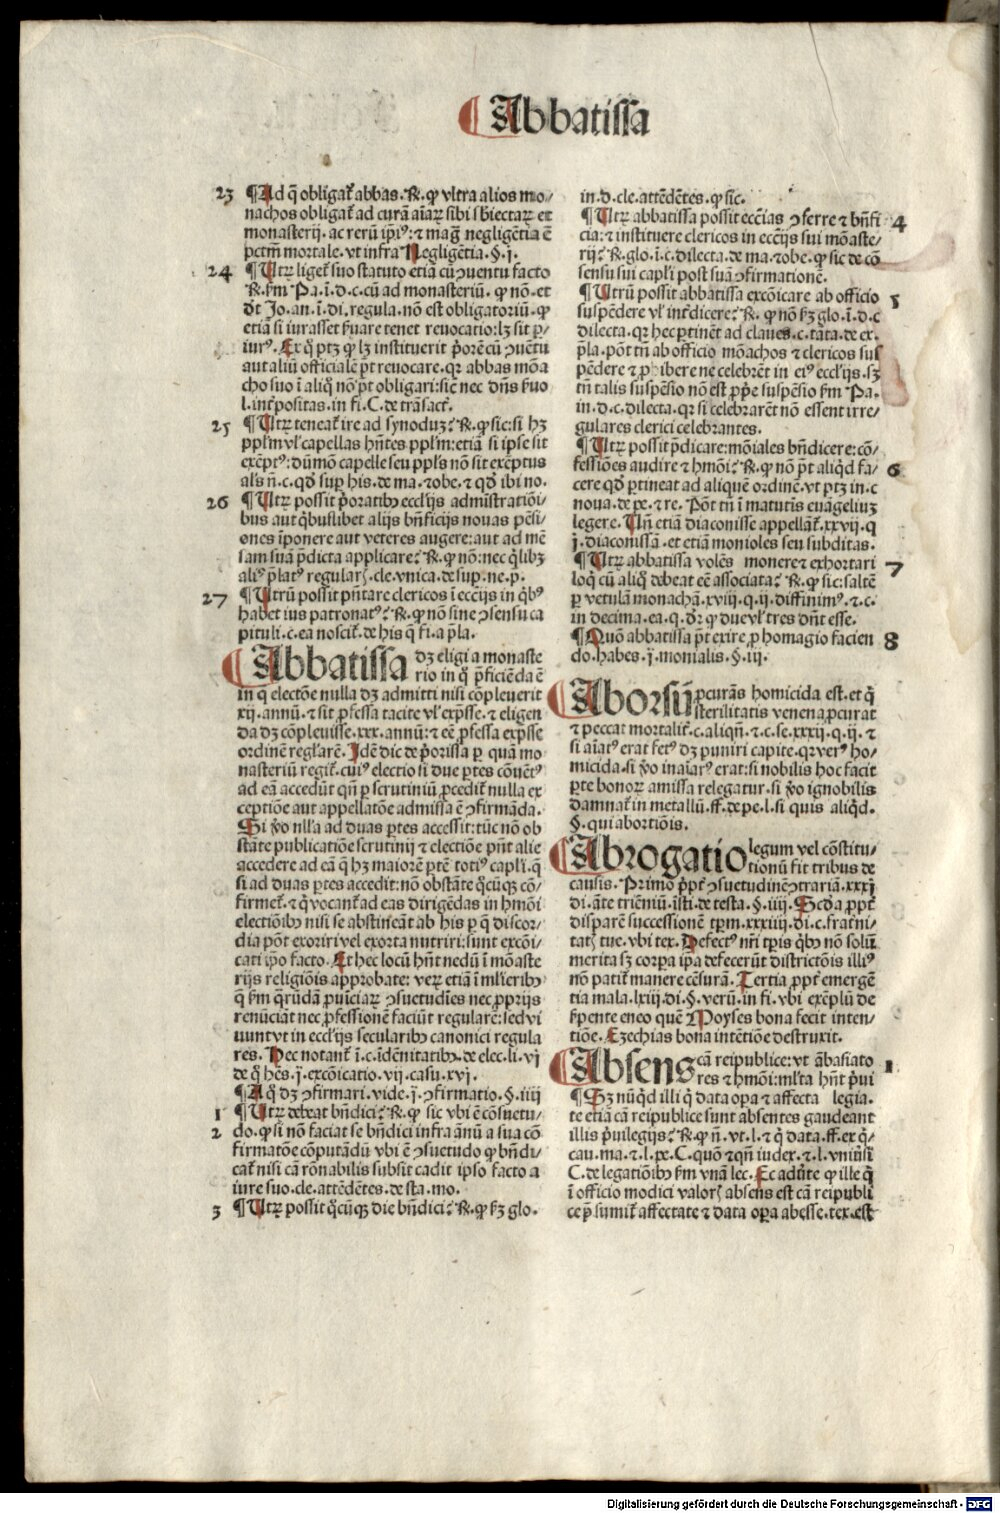 Abbatissa
23 ¶Ad q̃ obligat̃ abbas. R. ꝙ vltra alios mo/
nachos obligat̃ ad curã aĩaꝝ sibi sbiectaꝝ et
monasterij. ac rerũ ip̃iꝰ: ⁊ mag̃ negligẽtia ẽ
pctm̃ mortale. vt infra Negligẽtia. §. j.
24 ¶Utꝝ liget̃ suo statuto etiã cũ ꝯuentu facto
R. ẜm Pa. ĩ. d. c. cũ ad monasteriũ. ꝙ nõ. et
dc̃t Jo. an. ĩ. di. regula. nõ est obligatoriũ. ꝙ
etiã si iurasset ẜuare tenet reuocatio: lꝫ sit ꝑ/
iurꝰ. Ex q̃ ptꝫ ꝙ lꝫ instituerit p̃orẽ cũ ꝯuẽtu
aut aliũ officialẽ p̃t reuocare. qꝛ abbas mõa
cho suo ĩ aliq̃ nõ p̃t obligari: sic̃ nec dñs ẜuo
l. int̃positas. in fi. C. de trãsact̃.
25 ¶Utꝝ teneat̃ ire ad synoduꝫ: R. ꝙ sic: si hꝫ
pplm̃ vl̃ capellas hñtes pplm̃: etiã si ipse sit
exẽptꝰ: dũmõ capelle seu ppl̃s nõ sit exẽptus
al̃s ñ. c. qd̃ suꝑ his. de ma. ⁊ obe. ⁊ qd̃ ibi no.
26 ¶Utꝝ possit p̃oratibꝫ eccl̃ijs admĩstratiõi/
bus aut q̃buslibet alijs bñficijs nouas pẽsi/
ones ĩponere aut veteres augere: aut ad mẽ
sam suã p̃dicta applicare: R. ꝙ nõ: nec q̃libꝫ
aliꝰ p̃latꝰ regularꝭ. cle. vnica. de sup. ne. p.
27 ¶Utrũ possit pñtare clericos ĩ ecc̃ijs in q̃bꝰ
habet ius patronatꝰ: R. ꝙ nõ sine ꝯsensu ca
pituli. c. ea noscit̃. de his q̃ fi. a p̃la.
Abbatissa dꝫ eligi a monaste
rio in q̃ p̃ficiẽda ẽ
in q̃ electõe nulla dꝫ admitti nisi cõpleuerit
xij. annũ. ⁊ sit ꝓfessa tacite vl̃ exp̃sse. ⁊ eligen
da dꝫ cõpleuisse. xxx. annũ: ⁊ eẽ ꝓfessa exp̃sse
ordinẽ regl̃arẽ. Idẽ dic de p̃orissa ꝑ quã mo
nasteriũ regit̃. cuiꝰ electio si due ꝑtes cõuẽtꝰ
ad eã accedũt qñ ꝑ scrutiniũ ꝓcedit̃ nulla ex
ceptiõe aut appellatõe admissa ẽ ꝯfirmãda.
Si ṽo nll̃a ad duas ꝑtes accessit: tũc nõ ob
stãte publicatiõe scrutinij ⁊ electiõe pñt alie
accedere ad eã q̃ hꝫ maiorẽ ꝑtẽ totiꝰ capl̃i. q̃
si ad duas ꝑtes accedit: nõ obstãte q̃cũqꝫ cõ/
firmet̃. ⁊ q̃ vocant̃ ad eas dirigẽdas in hmõi
electiõibꝫ nisi se abstineãt ab his ꝑ q̃ discor/
dia põt exoriri vel exorta nutriri: sunt excõi/
cati ip̃o facto. Et hec locũ hñt nedũ ĩ mõaste
rijs religiõis approbate: veꝝ etiã ĩ ml̃ieribꝫ
q̃ ẜm q̃rũdã ꝓuĩciaꝝ ꝯsuetudĩes nec ꝓprijs
renũciãt nec ꝓfessionẽ faciũt regularẽ: sed vi
uunt vt in eccl̃ijs secularibꝫ canonici regula
res. Hec notant̃ ĩ. c. ĩdẽnitatibꝫ. de elec. li. vj
de q̃ hẽs. j̃. excõicatio. vij. casu. xvj.
¶A q̃ dꝫ ꝯfirmari. vide. j̃. ꝯfirmatio. §. iiij
1 ¶Utꝝ debeat bñdici: R. ꝙ sic vbi ẽ cõsuetu/
2 do. ꝙ si nõ faciat se bñdici infra ãnũ a sua cõ
firmatõe cõputãdũ vbi ẽ ꝯsuetudo ꝙ bñdi/
cat̃ nisi cã rõnabilis subsit cadit ipso facto a
iure suo. cle. attẽdẽtes. de sta. mo.
3 ¶Utꝝ possit q̃cũqꝫ die bñdici: R. ꝙ ẜꝫ glo.
in. d. cle. attẽdẽtes. ꝙ sic.
¶Utꝝ abbatissa possit ecc̃ias ꝯferre ⁊ bñfi 4
cia: ⁊ instituere clericos in ecc̃ijs sui mõaste/
rij: R. glo. ĩ. c. dilecta. de ma. ⁊ obe. ꝙ sic de cõ
sensu sui capl̃i post suã ꝯfirmationẽ.
¶Utrũ possit abbatissa excõicare ab officio 5
suspẽdere vl̃ int̃dicere: R. ꝙ nõ ẜꝫ glo. ĩ. d. c
dilecta. qꝛ hec ꝑtinẽt ad claues. c. tãta. de ex.
p̃la. põt tñ ab officio mõachos ⁊ clericos sus
pẽdere ⁊ ꝓhibere ne celebrẽt in eiꝰ eccl̃ijs. sꝫ
tñ talis suspẽsio nõ est ꝓp̃e suspẽsio ẜm Pa.
in. d. c. dilecta. qꝛ si celebrarẽt nõ essent irre/
gulares clerici celebrantes.
¶Utꝝ possit p̃dicare: mõiales bñdicere: cõ/
fessiões audire ⁊ hmõi: R. ꝙ nõ p̃t aliq̃d fa/ 6
cere qd̃ ꝑtineat ad aliquẽ ordinẽ. vt ptꝫ in. c
noua. de pe. ⁊ re. Põt tñ ĩ matutis euãgeliuꝫ
legere. Uñ etiã diaconisse appellãt̃. xxvij. q
j. diaconissã. et etiã monioles seu subditas.
¶Utꝝ abbatissa volẽs monere ⁊ exhortari 7
loq̃ cũ aliq̃ debeat eẽ associata: R. ꝙ sic: saltẽ
ꝑ vetulã monachã. xviij. q. ij. diffinimꝰ. ⁊. c.
in decima. ea. q. d̃r ꝙ due vl̃ tres dñt esse.
¶Quõ abbatissa p̃t exire ꝓ homagio facien 8
do. habes. j̃. monialis. §. iij.
Aborsũ ꝓcurãs homicida est. et q̃
sterilitatis venena ꝓcurat
⁊ peccat mortalit̃. c. aliqñ. ⁊. c. se. xxxij. q. ij. ⁊
si aĩatꝰ erat fetꝰ dꝫ puniri capite. qꝛ verꝰ ho/
micida. si ṽo inaĩatꝰ erat: si nobilis hoc facit
ꝑte bonoꝝ amissa relegatur. si ṽo ignobilis
damnat̃ in metallũ. ff. de pe. l. si quis aliq̃d.
§. qui abortiõis.
Abrogatio legum vel cõstitu/
tionũ fit tribus de
causis. Primo ꝓpt̃ ꝯsuetudinẽ ꝯtrariã. xxxj
di. ãte triẽniũ. ĩsti. de testa. §. iiij. Scd̃a ꝓpt̃
disparẽ successionẽ tp̃m. xxxiiij. di. c. frat̃ni/
tatꝭ tue. vbi tex. Defectꝰ nr̃i tp̃is q̃bꝫ nõ solũ
merita sꝫ corꝑa ip̃a defecerũt districtõis illiꝰ
nõ patit̃ manere cẽsurã. Tertia ꝓpt̃ emergẽ
tia mala. lxiij. di. §. verũ. in fi. vbi exẽplũ de
ẜpente eneo quẽ Moyses bona fecit inten/
tiõe. Ezechias bona intẽtiõe destruxit.
Absens cã reipublice: vt ãbasiato 1
res ⁊ hmõi: ml̃ta hñt p̃ui
¶Sꝫ nũq̃d illi q̃ data opa ⁊ affecta legia.
te etiã cã reipublice sunt absentes gaudeant
illis p̃uilegijs: R. ꝙ ñ. vt. l. ⁊ q̃ data. ff. ex q̃/
cau. ma. ⁊. l. pe. C. quõ ⁊ qñ iudex. ⁊. l. vniũsi
C. de legatiõibꝫ ẜm vnã lec. Et adũte ꝙ ille q̃
ĩ officio modici valorꝭ absens est cã reipubli
ce p̃sumit̃ affectate ⁊ data opa abesse. tex. est
Digitalisierung gefördert durch die Deutsche Forschungsgemeinschaft - DFG